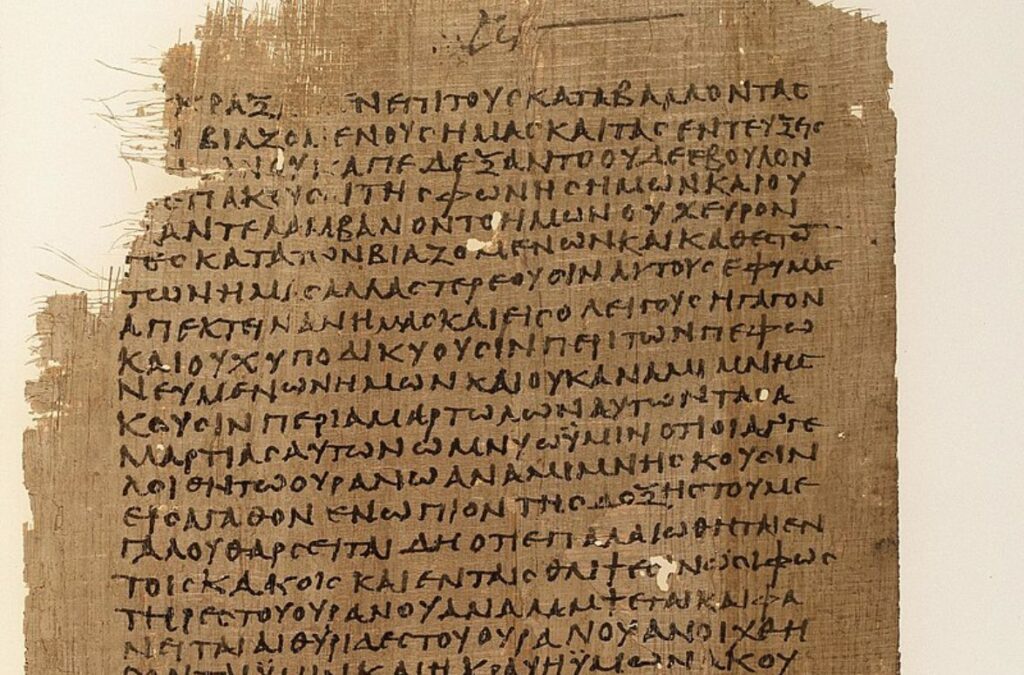 ΚΡΑΞ ΕΝΕΠΙΤΟΥϹΚΑΤΑΒΑΛΛΟΝΤΑϹ
ΒΙΑΖΟΜΕΝΟΥϹΗΜΑϹΚΑΙΤΑϹΕΝΤΕΥΞΕΙϹ
ΑΠΕΔΕΞΑΝΤΟΟΥΔΕΕΒΟΥΛΟΝ
ΕΠΑΚΟΥϹΑΙΤΗϹΦΩΝΗϹΗΜΩΝΚΑΙΟΥ
ΑΝΤΕΛΑΜΒΑΝΟΝΤΟΗΜΩΝΟΥΧΕΥΡΟΝ
ΤΕϹΚΑΤΑΤΩΝΒΙΑΖΟΜΕΝΩΝΚΑΙΚΑΘΕϹΤΩ
ΤΩΝΗΜΑϹΑΛΛΑϹΤΕΡΕΟΥϹΙΝΑΥΤΟΥϹΕΦΥΜΑϹ
ΑΠΕΚΤΕΙΝΑΝΗΜΑϹΚΑΙΕΙϹΟΛΕΙΓΟΥϹΗΓΑΓΟΝ
ΚΑΙΟΥΧΥΠΟΔΙΚΥΟΥϹΙΝΠΕΡΙΤΩΝΠΕΦΩ
ΝΕΥΜΕΝΩΝΗΜΩΝΚΑΙΟΥΚΑΝΑΜΙΜΝΗϹ
ΚΟΥϹΙΝΠΕΡΙΑΜΑΡΤΩΛΩΝΑΥΤΩΝΤΑϹΑ
ΜΑΡΤΙΑϹΑΥΤΩΝΩΜΝΥΩΫΜΙΝΟΤΙΟΙΑΓΓΕ
ΛΟΙΕΝΤΩΟΥΡΑΝΩΑΝΑΜΙΜΝΗϹΚΟΥϹΙΝ
ΕΙϹΑΓΑΘΟΝΕΝΩΠΙΟΝΤΗϹΔΟΞΗϹΤΟΥΜΕ
ΓΑΛΟΥΘΑΡϹΕΙΤΑΙΔΗΟΤΙΕΠΑΛΑΙΩΘΗΤΑΙΕΝ
ΤΟΙϹΚΑΚΟΙϹΚΑΙΕΝΤΑΙϹΘΛΙΨΕϹΙΝΩϹΙΦΩϹ
ΤΗΡΕϹΤΟΥΟΥΡΑΝΟΥΑΝΑΛΑΜΨΕΤΑΙΚΑΙΦΑ
ΝΕΙΤΑΙΑΙΘΥΡΙΔΕϹΤΟΥΟΥΡΑΝΟΥΑΝΟΙΧΘΗ
ϹΟΝΤΑΙΫΜΙΝΚΑΙΗΚΡΑΥΗΫΜΩΝΑΚΟΥ